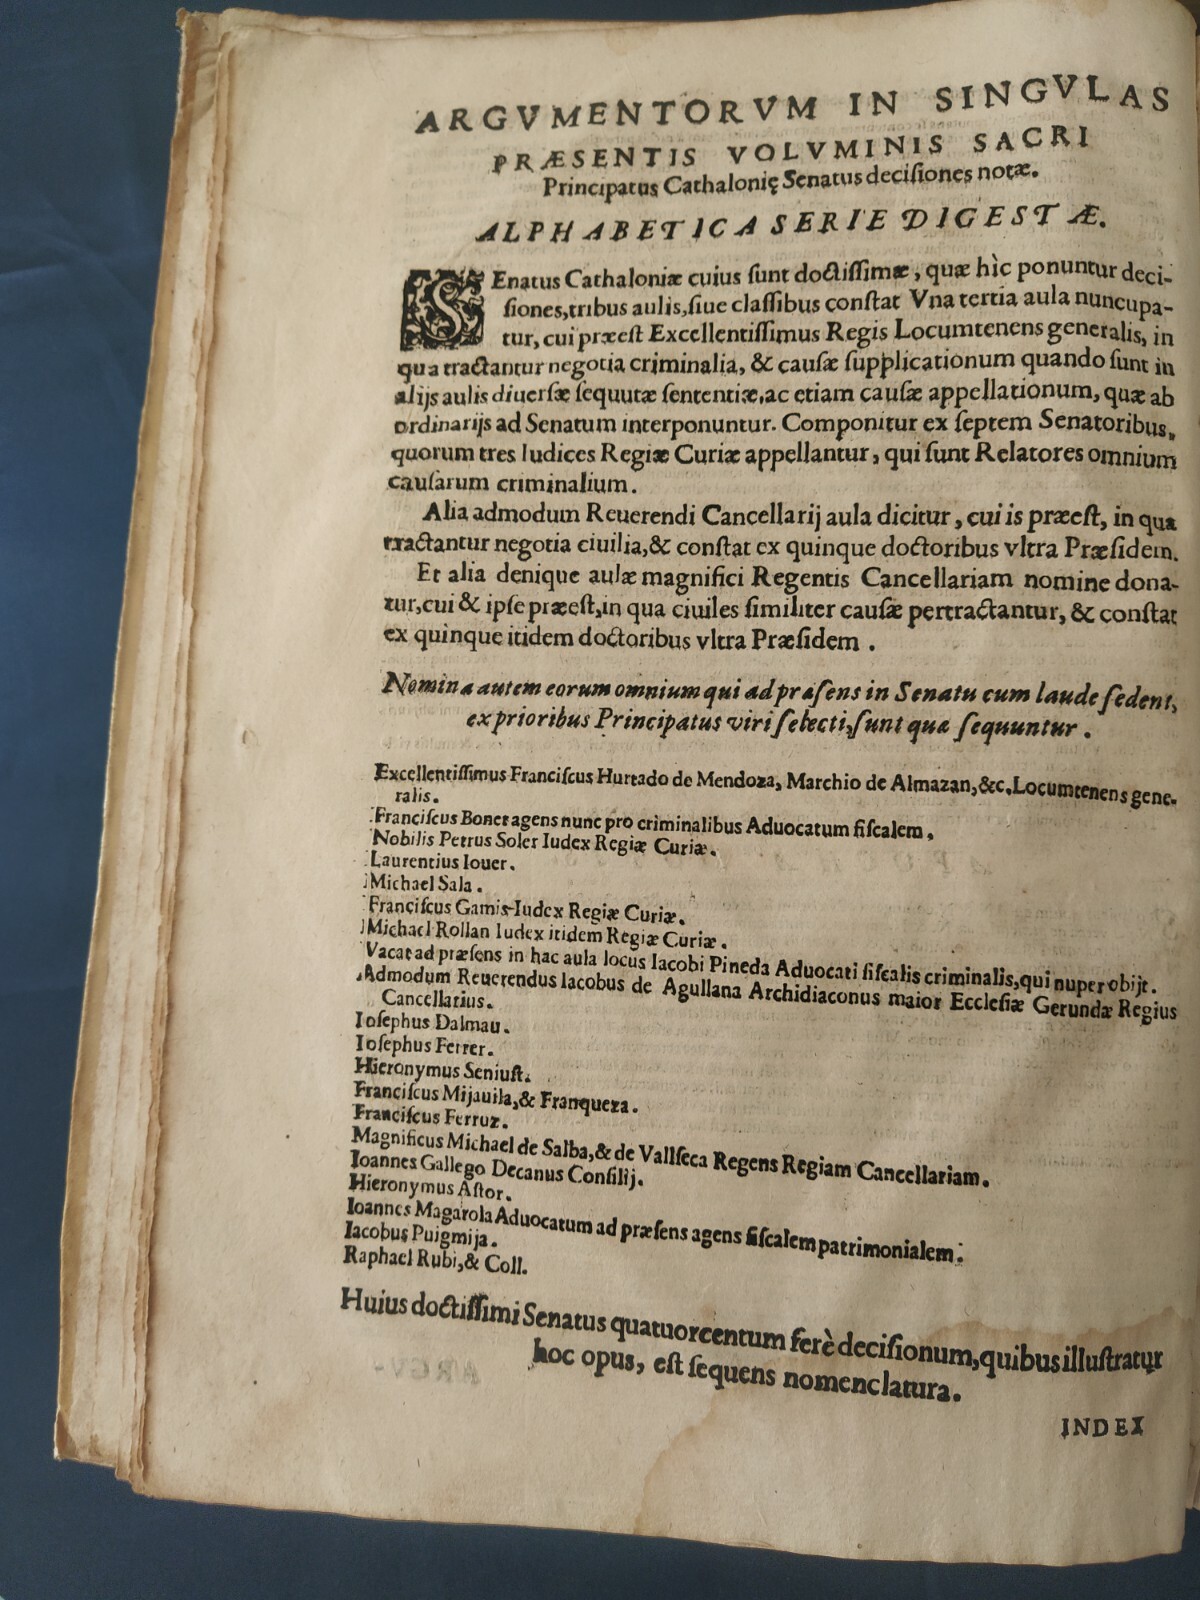 ARGVMENTORVM IN SINGVLAS
PRÆSENTIS VOLVMINIS SACRI
Principatus Cathalonię Senatus decisiones notæ.
ALPHABETICA SERIE DIGESTÆ.
SEnatus Cathaloniæ cuius sunt doctissimæ, quæ hìc ponuntur deci-
siones,tribus aulis,siue classibus constat Vna tertia aula nuncupa-
tur, cui præest Excellentissimus Regis Locumtenens generalis, in
qua tractantur negotia criminalia, & causæ supplicationum quando sunt in
alijs aulis diuersæ sequutæ sententiæ,ac etiam causæ appellationum, quæ ab
ordinarijs ad Senatum interponuntur. Componitur ex septem Senatoribus,
quorum tres Iudices Regiæ Curiæ appellantur, qui sunt Relatores omnium
causarum criminalium.
Alia admodum Reuerendi Cancellarij aula dicitur, cui is præest, in qua
tractantur negotia ciuilia,& constat ex quinque doctoribus vltra Præsidem.
Et alia denique aulæ magnifici Regentis Cancellariam nomine dona-
tur,cui & ipse præest,in qua ciuiles similiter causæ pertractantur, & constat
ex quinque itidem doctoribus vltra Præsidem .
Nomina autem eorum omnium qui ad præsens in Senatu cum laude sedent,
ex prioribus Principatus viri selecti,sunt quæ sequuntur .
Excellentissimus Franciscus Hurtado de Mendoza, Marchio de Almazan,&c.Locumtenens gene-
ralis.
Franciscus Bonet agens nunc pro criminalibus Aduocatum fiscalem.
Nobilis Petrus Soler Iudex Regiæ Curiæ.
Laurentius Iouer.
Michael Sala.
Franciscus Gamis Iudex Regiæ Curiæ.
Michael Rollan Iudex itidem Regiæ Curiæ.
Vacat ad præsens in hac aula locus Iacobi Pineda Aduocati fiscalis criminalis,qui nuper obijt.
Admodum Reuerendus Iacobus de Agullana Archidiaconus maior Ecclesiæ Gerundæ Regius
Cancellarius.
Iosephus Dalmau.
Iosephus Ferrer.
Hieronymus Seniust.
Franciscus Mijauila,& Franqueza.
Franciscus Ferruz.
Magnificus Michael de Salba,& de Vallseca Regens Regiam Cancellariam.
Ioannes Gallego Decanus Consilij.
Hieronymus Astor.
Ioannes Magarola Aduocatum ad præsens agens fiscalem patrimonialem.
Iacobus Puigmija.
Raphael Rubi,& Coll.
Huius doctissimi Senatus quatuorcentum ferè decisionum,quibus illustratur
hoc opus, est sequens nomenclatura.
INDEX